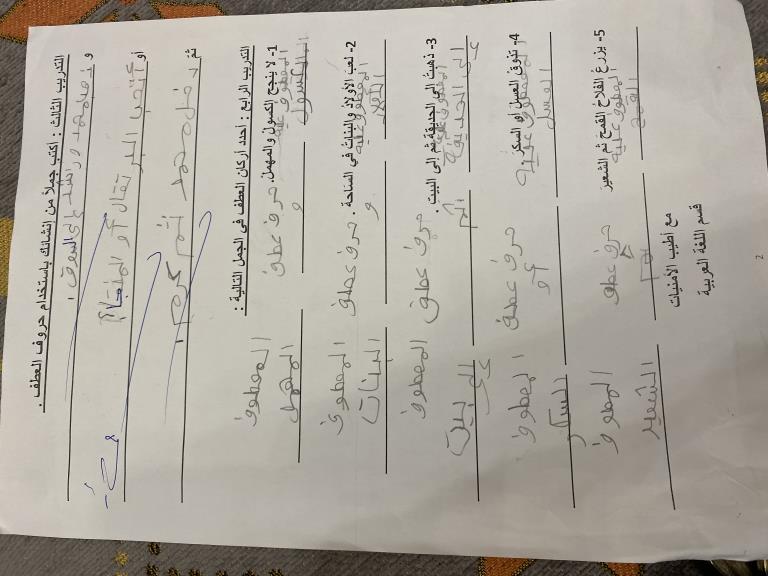 التدريب الثالث : أكتب جملاً من إنشائك باستخدام حروف العطف .
و ذهب محمد و راشد إلى السوق .
أو أتحب البرتقال أو التفاح
ثم دخل محمد ثم كريم .
التدريب الرابع : أحدد أركان العطف في الجمل التالية :
1- لا ينجح الكسول والمهمل.
المعطوف عليه حرف عطف المعطوف
الكسول و المهمل
2- لعب الأولاد والبنات في الساحة .
المعطوف عليه حرف عطف المعطوف
و البنات
3- ذهبت الى الحديقة ثم إلى البيت .
المعطوف عليه حرف عطف المعطوف
إلى الحديقة ثم
4- تذوق لعسل أو السكر
المعطوف عليه حرف عطف المعطوف
العسل أو السكر
5- يزرع الفلاح القمح ثم الشعير
المعطوف عليه حرف عطف المعطوف
القمح ثم الشعير
مع أطيب الأمنيات
قسم اللغة العربية
2